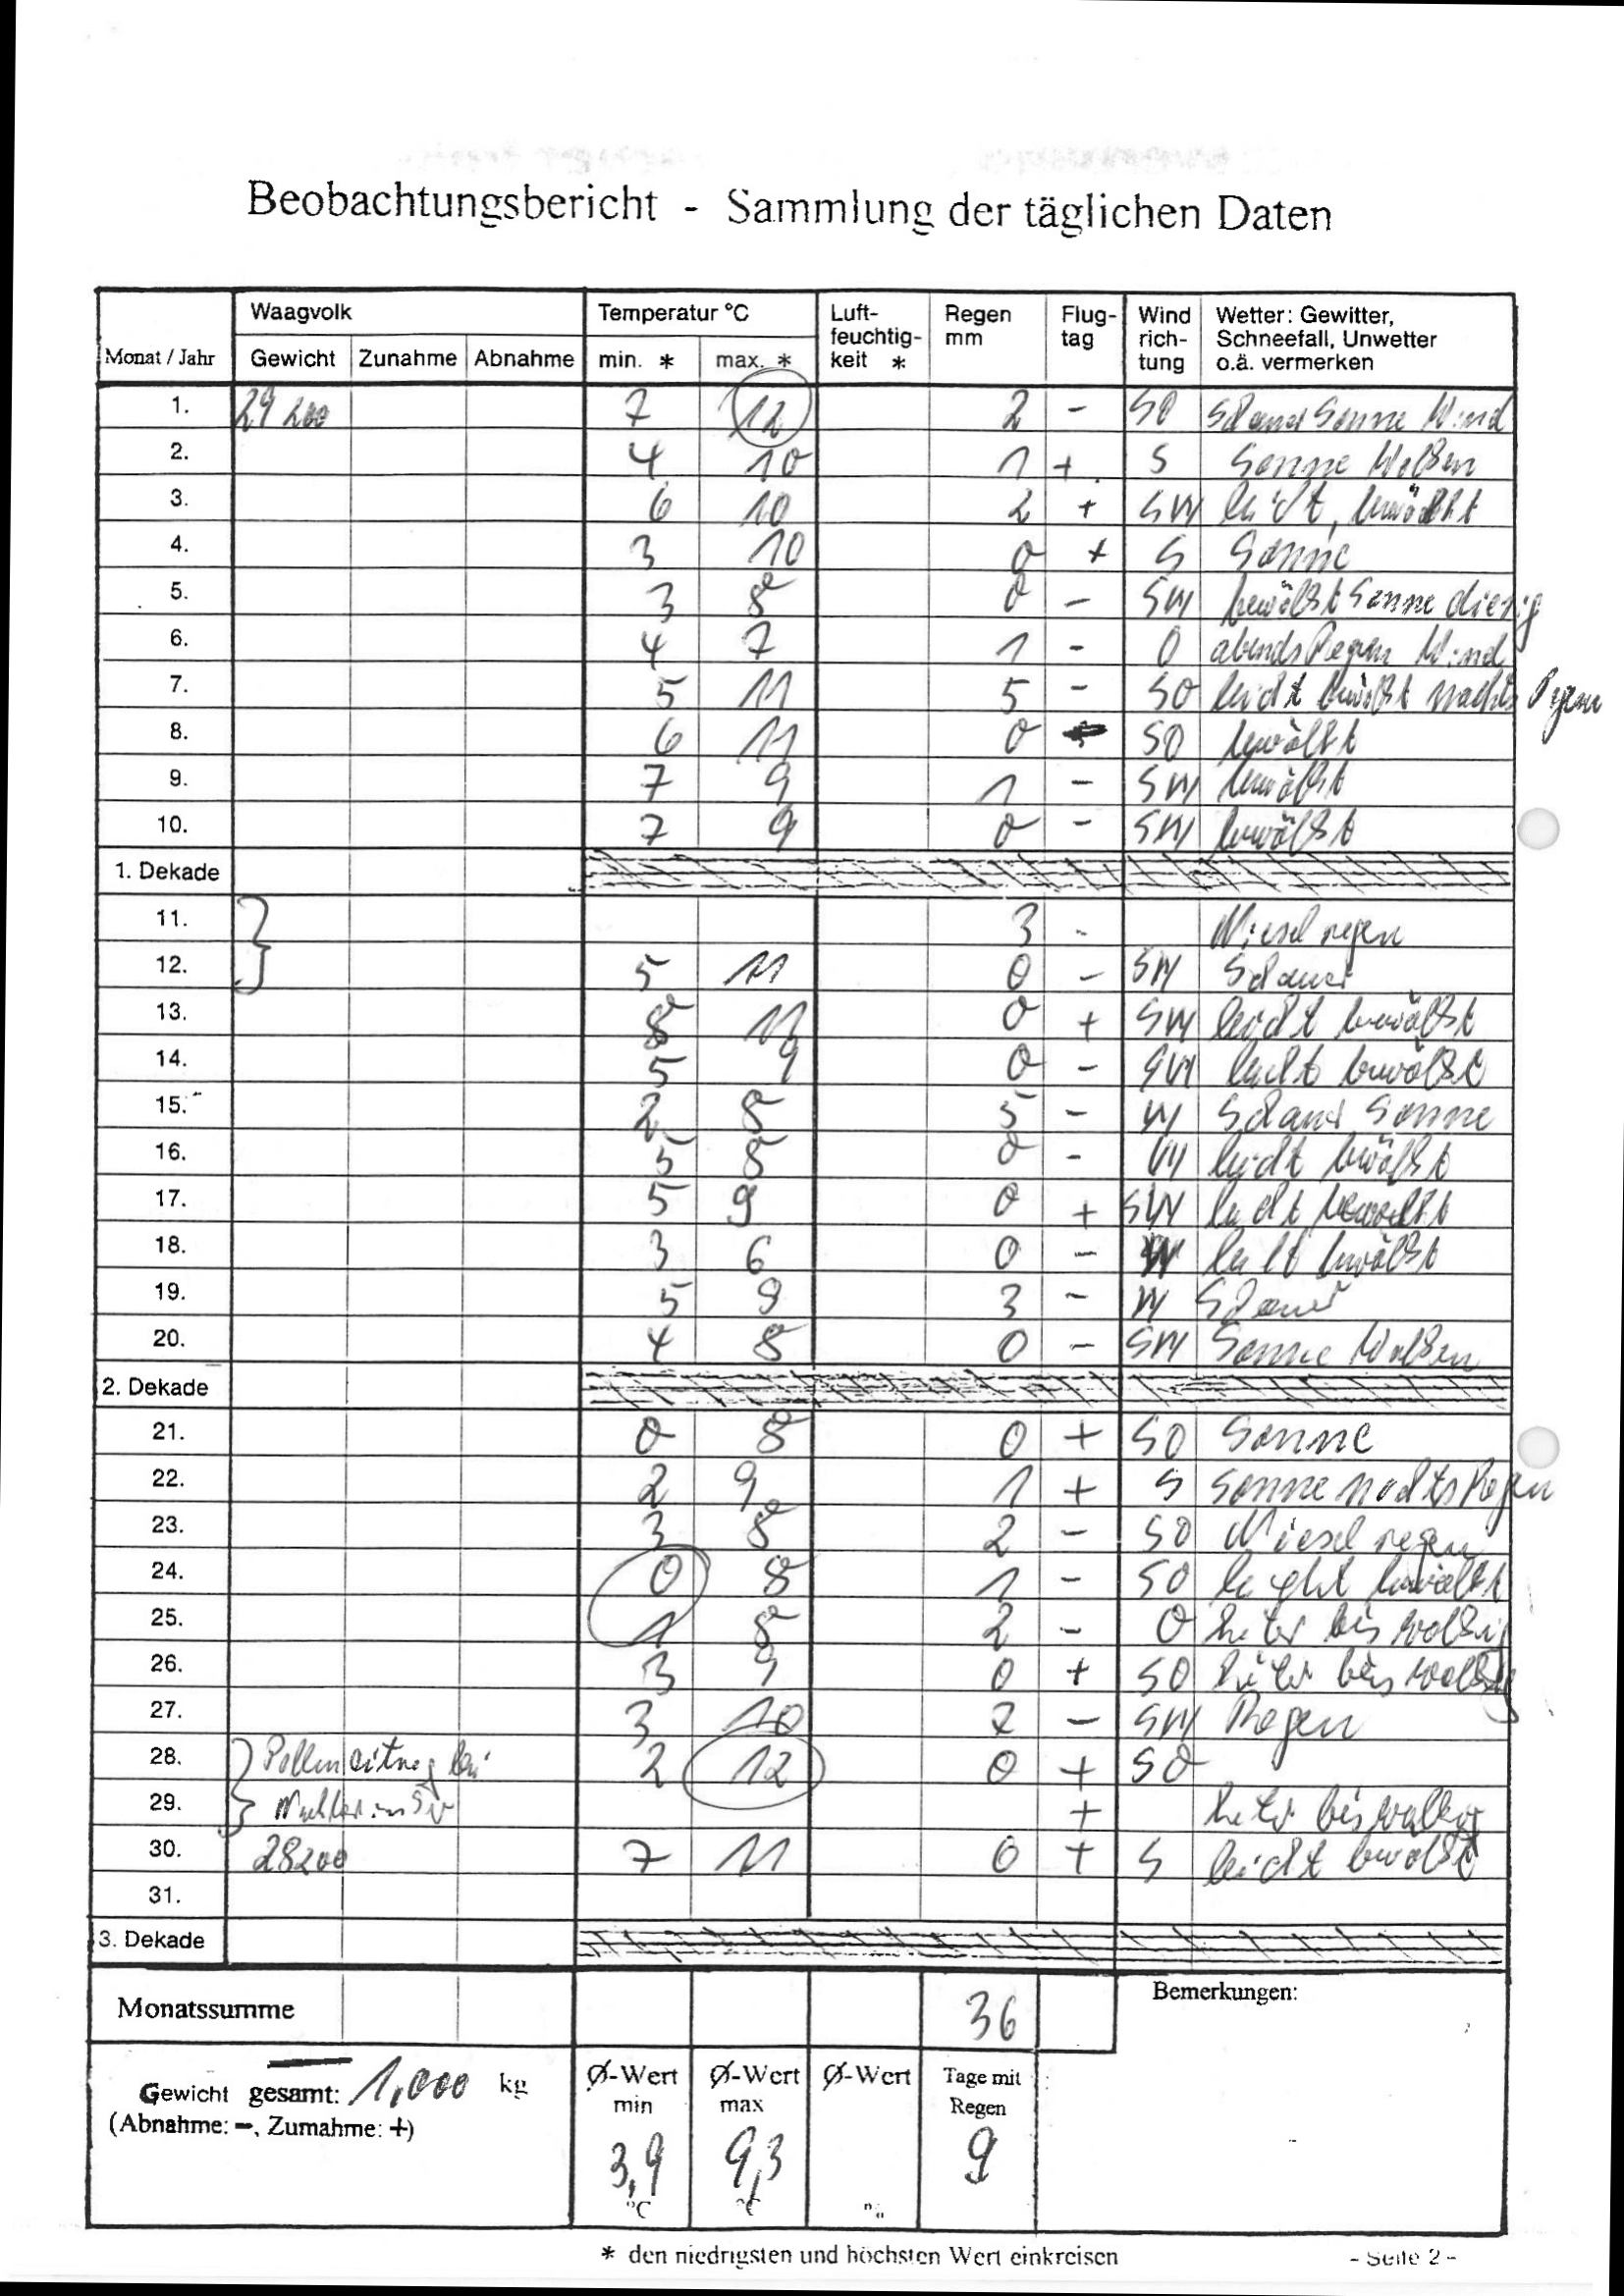 Beobachtungsbericht - Sammlung der täglichen Daten
Waagvolk Temperatur °C Luft- Regen Flug- Wind Wetter: Gewitter,
feuchtig- mm tag rich- Schneefall, Unwetter
Monat / Jahr Gewicht Zunahme Abnahme min. * max. * keit * tung o.ä. vermerken
1. 29 200 7 12 2 - SO Schauer Sonne Wind
2. 4 10 1 + S Sonne Wolken
3. 6 10 2 + SW leicht, bewölkt
4. 3 10 0 + S Sonne
5. 3 8 0 - SW bewölkt Sonne diesig
6. 4 7 1 - O abends Regen Wind
7. 5 11 5 - SO leicht bewölkt nachts Regen
8. 6 11 0 SO bewölkt
9. 7 9 1 - SW bewölkt
10. 7 9 0 - SW bewölkt
1. Dekade
11. 3 - Nieselregen
12. 5 11 0 - SW Schauer
13. 8 11 0 + SW leicht bewölkt
14. 5 9 0 - SW leicht bewölkt
15. 2 8 5 - W Schauer Sonne
16. 5 8 0 - W leicht bewölkt
17. 5 9 0 + SW leicht bewölkt
18. 3 6 0 - W leicht bewölkt
19. 5 9 3 - W Schauer
20. 4 8 0 - SW Sonne Wolken
2. Dekade
21. 0 8 0 + SO Sonne
22. 2 9 1 + S Sonne nachts Regen
23. 3 8 2 - SO Nieselregen
24. 0 8 1 - SO leicht bewölkt
25. 1 8 2 - O heiter bis wolkig
26. 3 9 0 + SO heiter bis wolkig
27. 3 10 7 - SW Regen
28. 2 12 0 + SO
29. + heiter bis wolkig
30. 28200 7 11 0 + S leicht bewölkt
31.
3. Dekade
Monatssumme 36 Bemerkungen:
Gewicht gesamt: - 1,000 kg Ø-Wert Ø-Wert Ø-Wert Tage mit
(Abnahme: -, Zumahme: +) min max Regen
3,9 9,3 9
°C °C
* den niedrigsten und höchsten Wert einkreisen - Seite 2 -